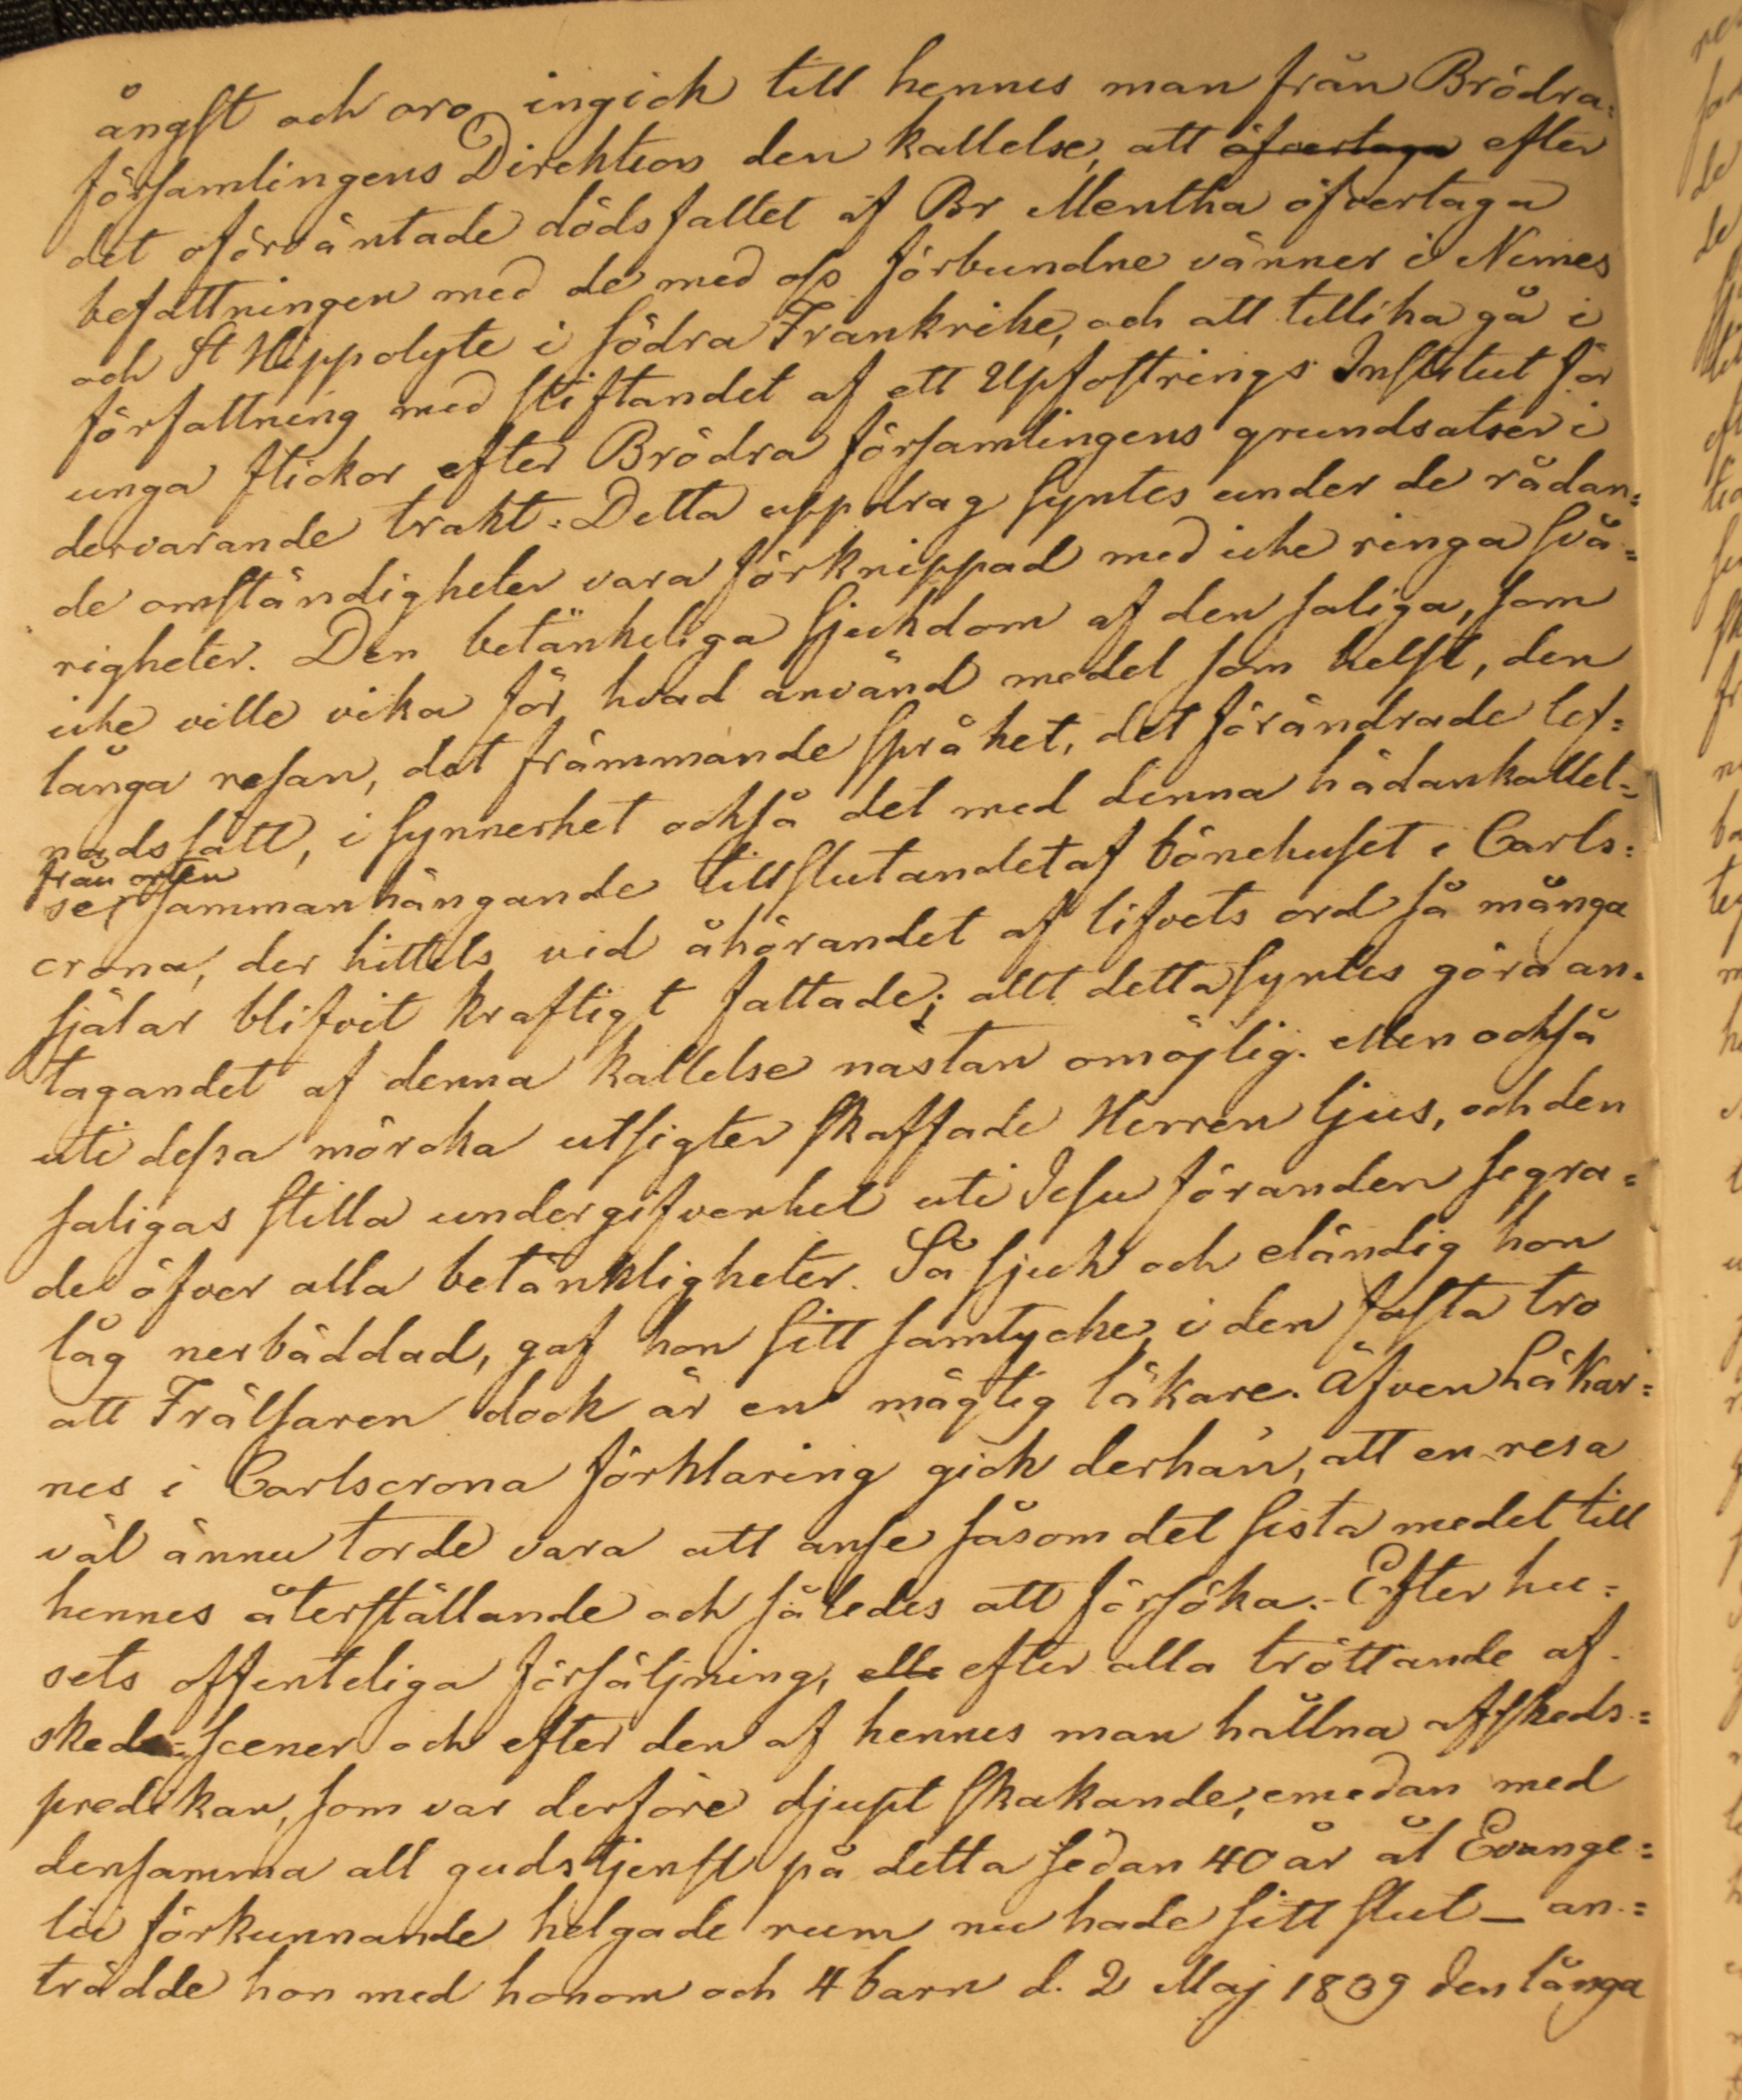 ångst och oro ingick till hennes man från Brödra=
församlingens Direktion den kallelse, att öfvertaga efter
det oförväntade dödsfallet af Br Mentha öfvertaga
befattningen med de med oss förbundne vänner i Nimes
och St Hippolyte i södra Frankrike, och att tillika gå i
författning med stiftandet af ett Upfostrings Institut för
unga flickor efter Brödra församlingens grundsatser i
dervarande trakt: Detta uppdrag syntes under de rådan=
de omständigheter vara förknippad med icke ringa svå=
righeter. Den betänkeliga sjukdom af den saliga, som
icke ville vika för hvad använd medel som helst, den
långa resan, det främmande språket, det förändrade lef=
nadssätt, i synnerhet också det med denna hädankallel=
från orten
se, sammanhängande tillslutandet af bönehuset i Carls=
crona, der hittels vid åhörandet af lifvets ord så många
själar blifvit kraftigt fattade; allt detta syntes göra an=
tagandet af denna kallelse nästan omöjlig. Men också
uti dessa mörcka utsigter skaffade Herren ljus, och den
saligas stilla undergifvenhet uti Jesu föranden segra=
de öfver alla betänkligheter. Så sjuk och eländig hon
låg nerbäddad, gaf hon sitt samtycke, i den fasta tro
att Frälsaren dock är en mägtig läkare. Äfven Läkar=
nes i Carlscrona förklaring gick derhän, att en resa
väl ännu torde vara att anse såsom det sista medel till
hennes återställande och således att försöka. - Efter hu=
sets offenteliga försäljning, elle efter alla tröttande af-
skeds=scener och efter den af hennes man hållna afskeds=
predikan, som var derföre djupt skakande, emedan med
densamma all gudstjenst på detta sedan 40 år åt Evange=
lii förkunnande helgade rum nu hade sitt slut _ an=
trädde hon med honom och 4 barn d. 2 Maj 1839 den långa